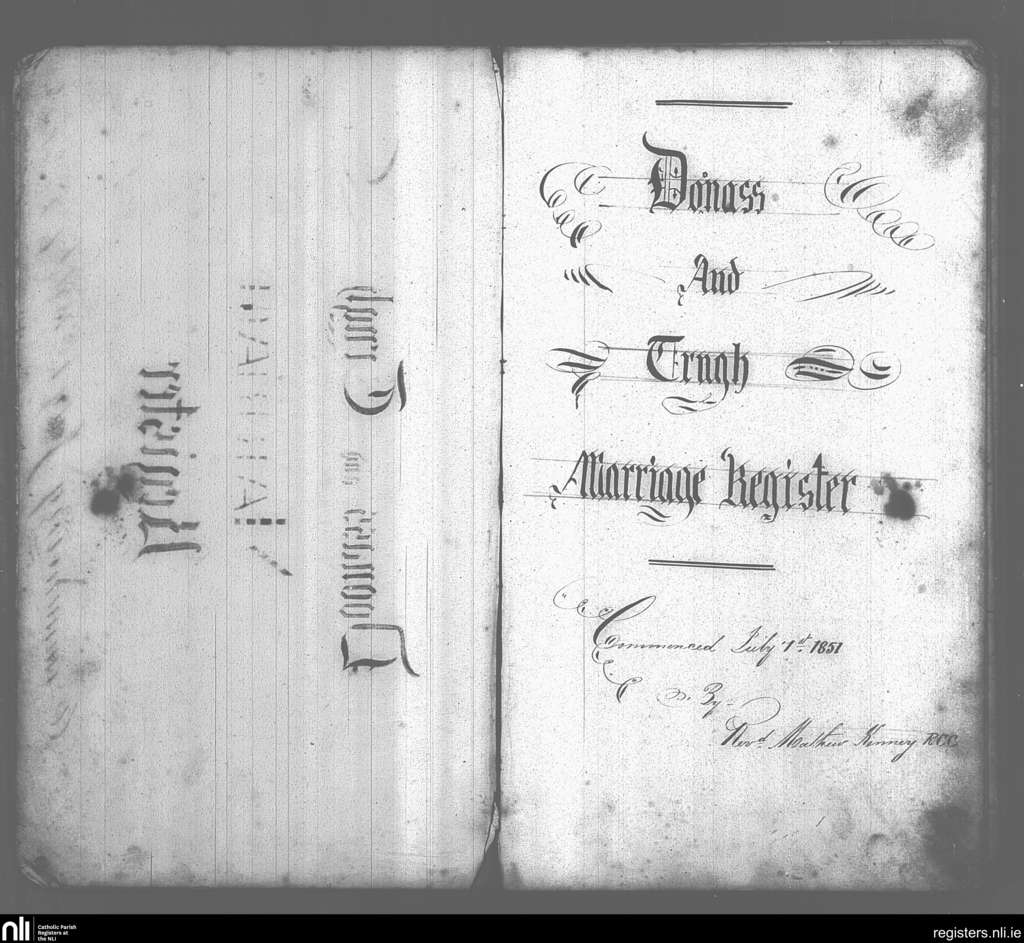 Donass
And
Trugh
Marriage Register
Commenced July 1st. 1851
By
Revd. Mathew Kenney RCC
Donass and Trugh
Register
nli
Catholic Parish
Registers at
the NLI
registers.nli.ie